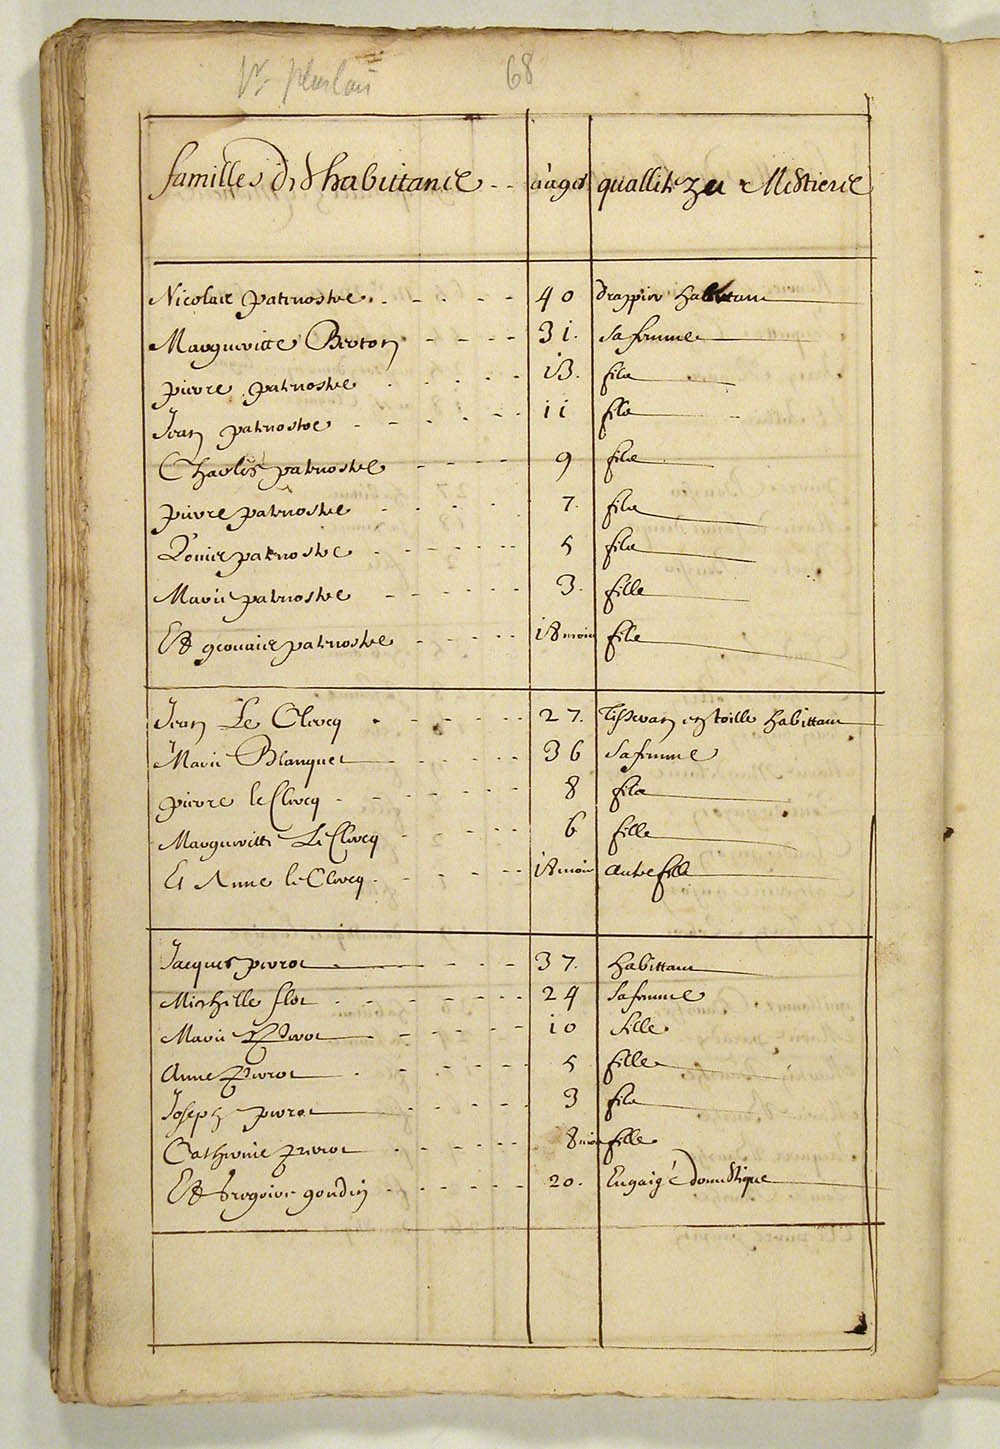 68
familles d'habittance aages quallitez et Mestiers
Nicolas patenostre 40 Drappier habittant
Margueritte Breton 31. Sa femme
pierre patenostre 13. fils
Jean patenostre 11 fils
Charles patenostre 9 fils
pierre patenostre 7. fils
Louis patenostre 5 fils
Marie patenostre 3. fille
Et patenostre 18 mois fils
Jean Le Clercq 27. Tisseran en toille habittant
Marie Blanquet 36 Sa femme
pierre le Clercq 8 fils
Margueritte Le Clercq 6 fille
Et Anne le Clercq 18 mois Autre fille
Jacques pivrot 37. habittant
Michelle flot 24 Sa femme
Marie Pivrot 10 fille
Anne Pivrot 5 fille
Joseph pivrot 3 fils
Catherine pivrot 8 mois fille
Et Gregoire goudin 20. Engaigé domestique